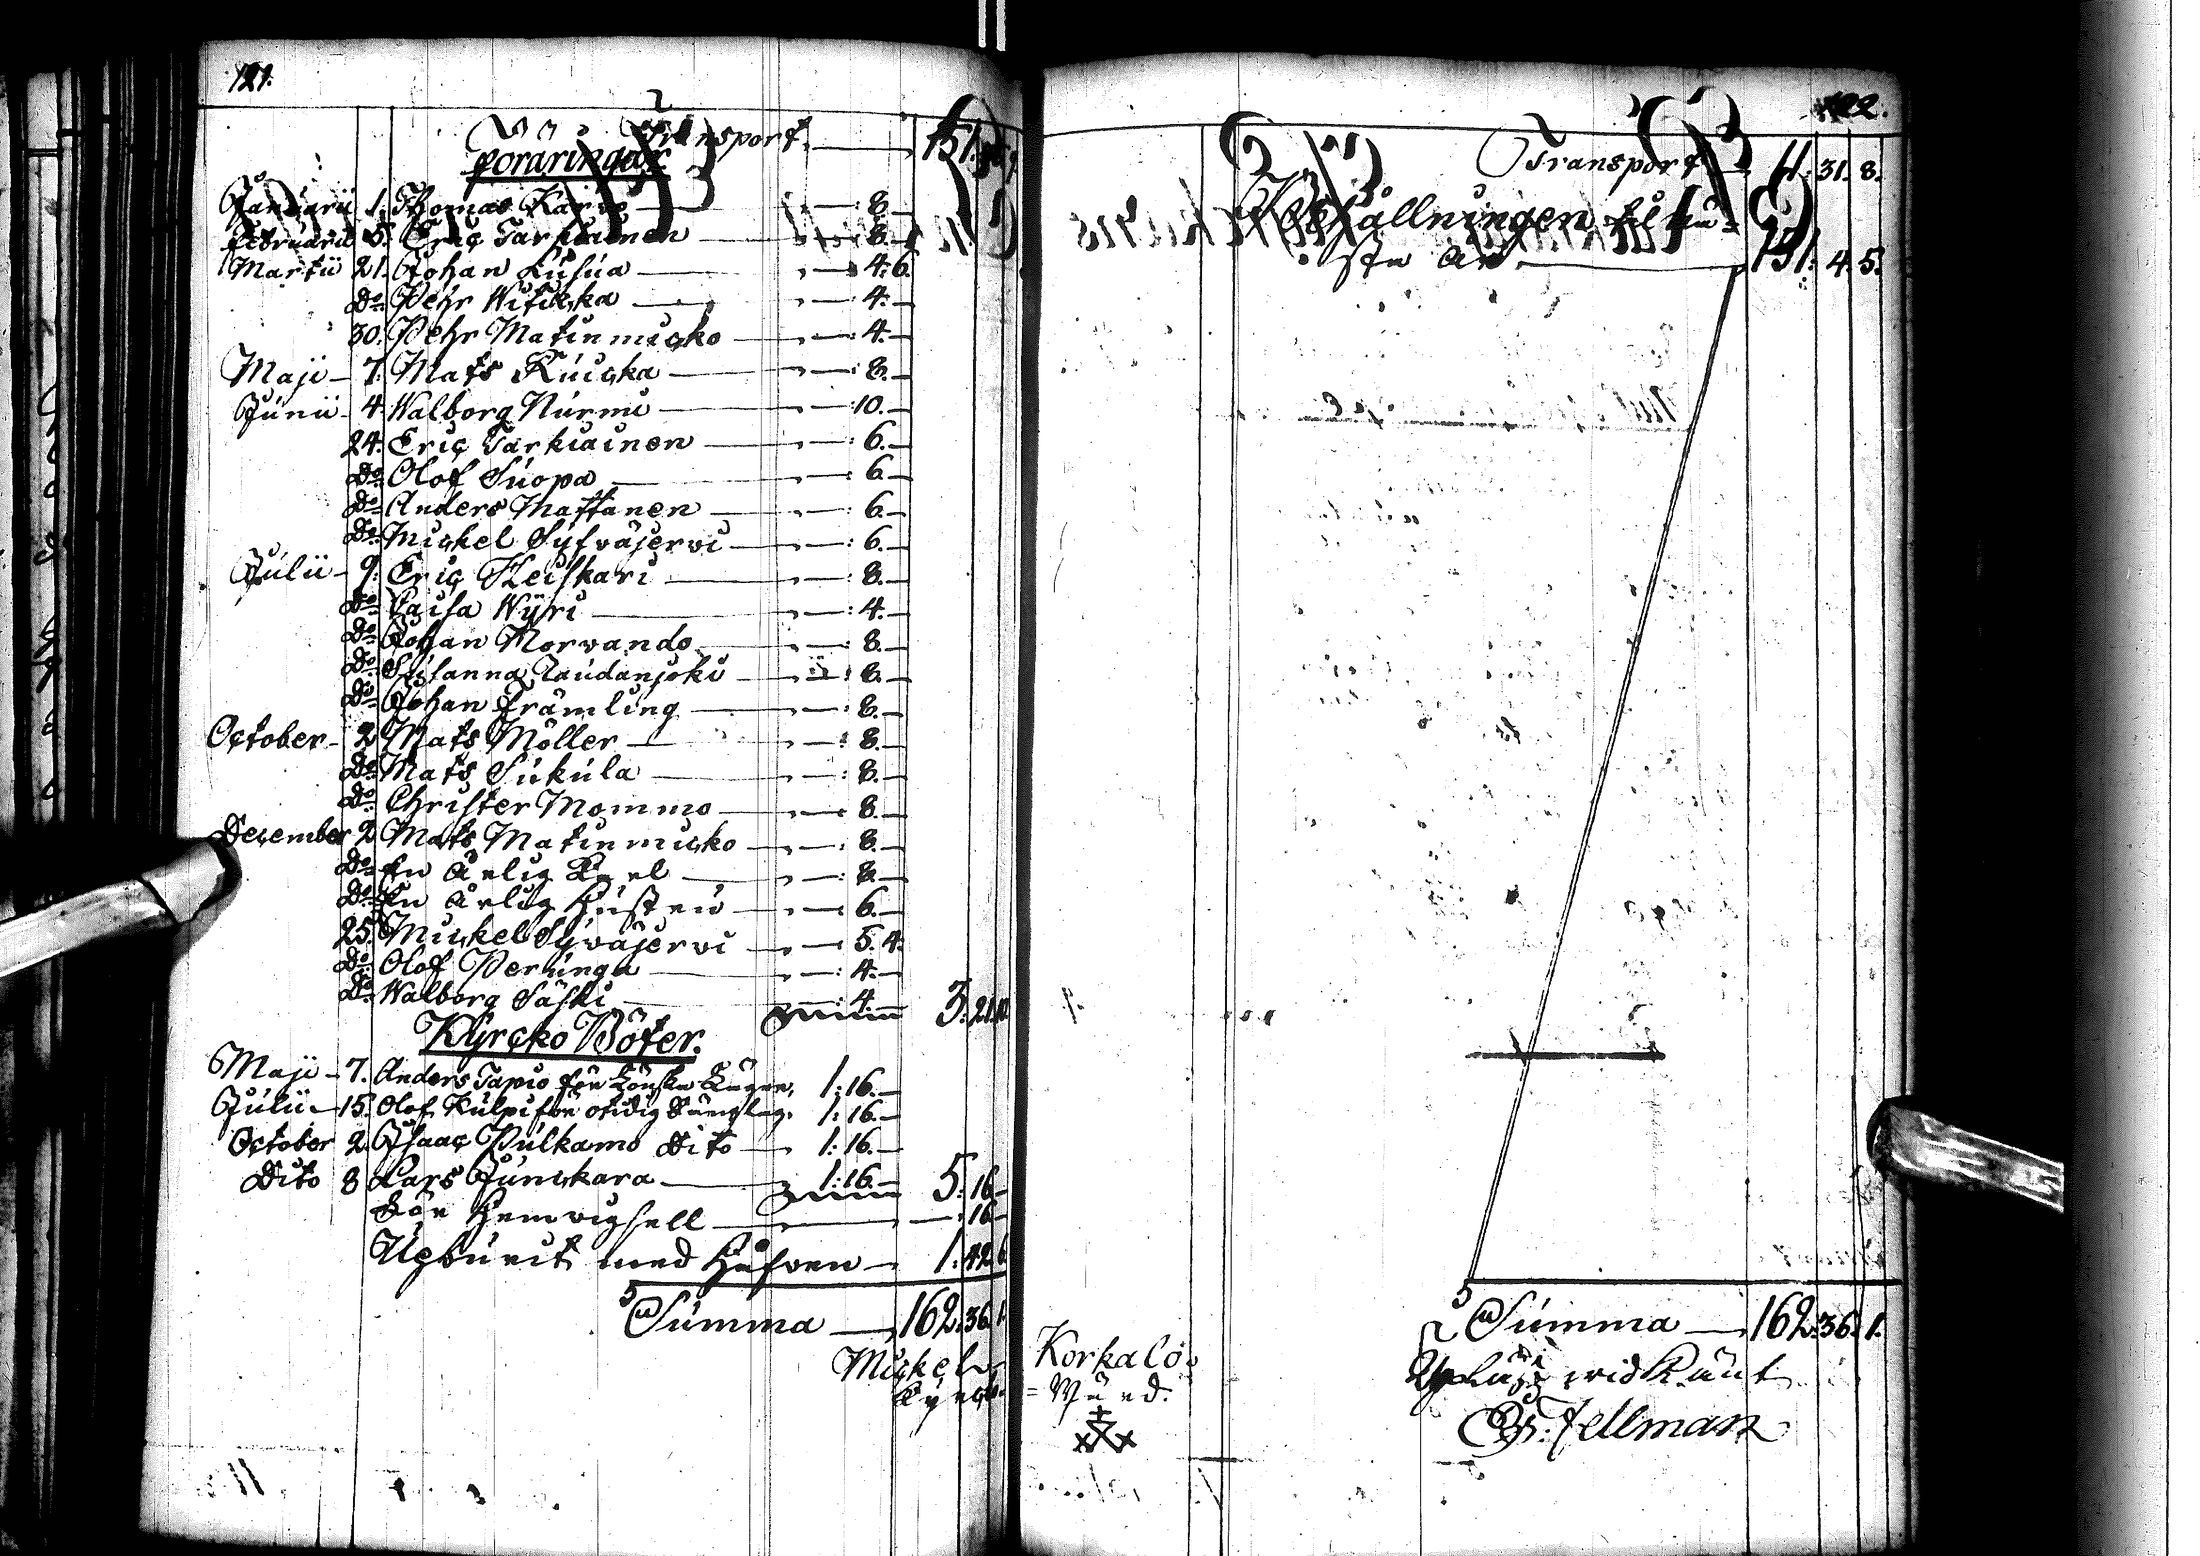 121.
Transport. 151.
Förähringar
Januarii 1. Thomas Karvo — 8.
Februarii 5. Eric Tarkiainen — 8.
Martii 21. Johan Kusua — 4:6.
Do Pehr Witicka — 4.
30. Pehr Matinmicko — 4.
Maji 7. Mats Kuicka — 8.
Junii 4. Walborg Nurmi — 10.
24. Eric Tarkiainen — 6.
Do Olof Suopa — 6.
Do Anders Mattanen — 6.
Do Mickel Syfväjervi — 6.
Julii 9. Eric Heiskari — 8.
Do Caisa Wyri — 4.
Do Johan Morvando — 8.
Do Susanna Raudanjoki — 8.
Do Johan Främling — 8.
October 2 Mats Möller — 8.
Do Mats Sukula — 8.
Do Christer Mommo — 8.
December 2 Mats Matinmicko — 8.
Do En ärlig Karl — 8.
Do En ärlig Hustru — 6.
25. Mickel Syväjervi — 5.4.
Do Olof Perunga — 4.
Do Walborg Säski — 4. 3:21.10
Kyrcko Böter.
Maji 7. Anders Tapio för 1:16.
Julii 15. Olof Kulpi för otidig Sänglag. 1:16.
October 2 Isaac Pulkamo Dito — 1:16.
Dito 8 Lars Junckara — 1:16. 5:16
För — 16
Upburit med Håfven — 1:42.6
Summa — 162.36.1.
Mickel
122.
Transport 11.31.8.
Behållningen til nä=
sta år — 151:4.5.
Summa — 162:36.1.
Korkalo
= Wärd.
Uplåst widkänt
Fellman